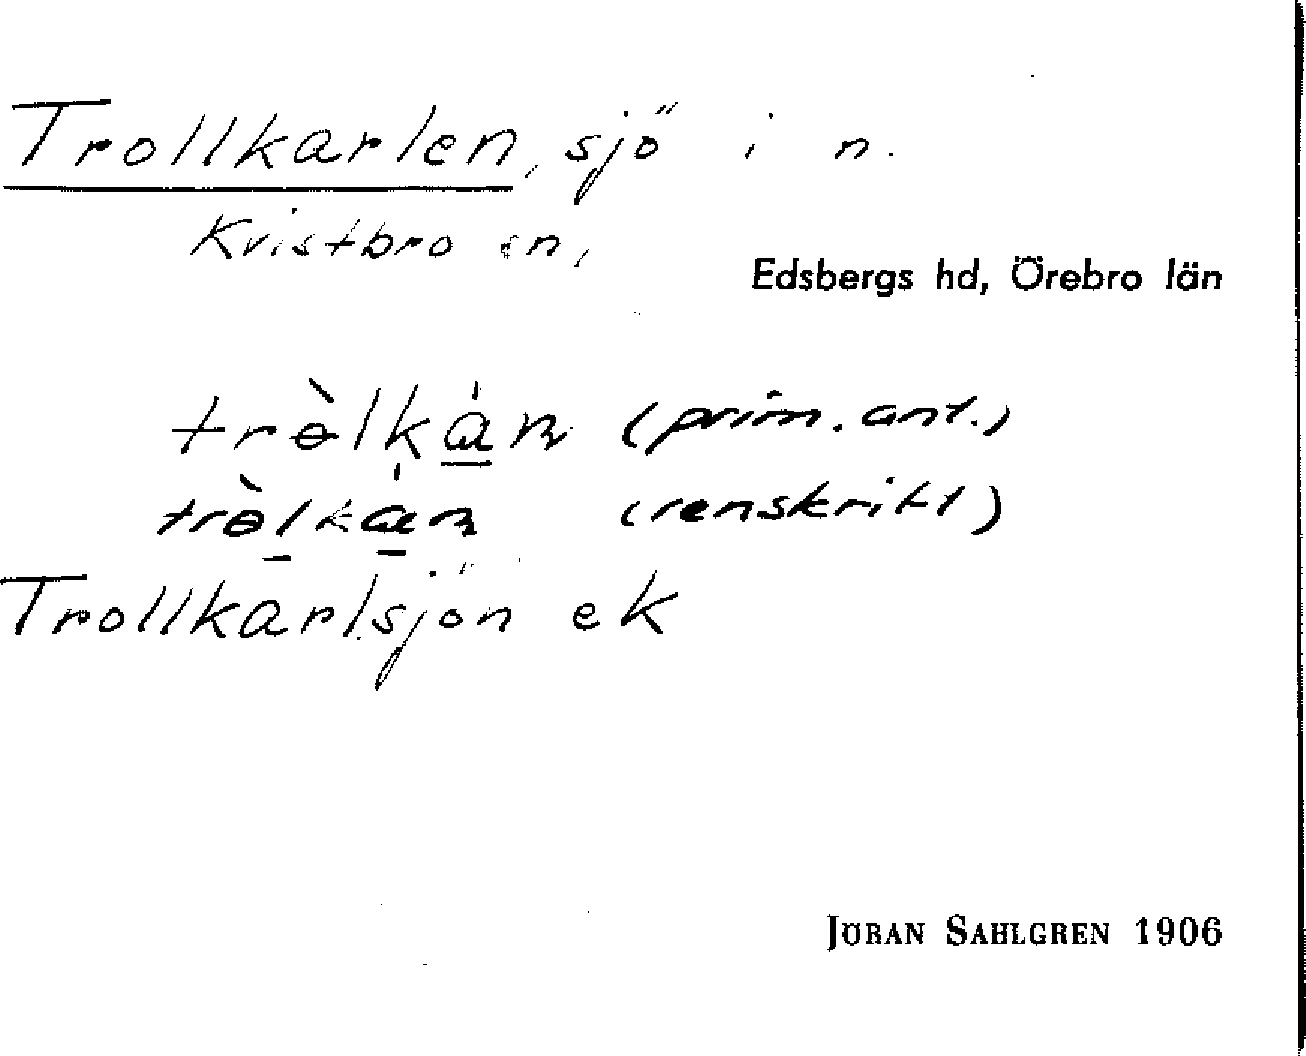 Trollkarlen, sjö i n.
Kvistbro sn,
Edsbergs hd, Örebro län
trɵ̀lkán (prim. ant.)
trɵ̀lkán (renskrift)
Trollkarlsjön ek
JÖRAN SAHLGREN 1906